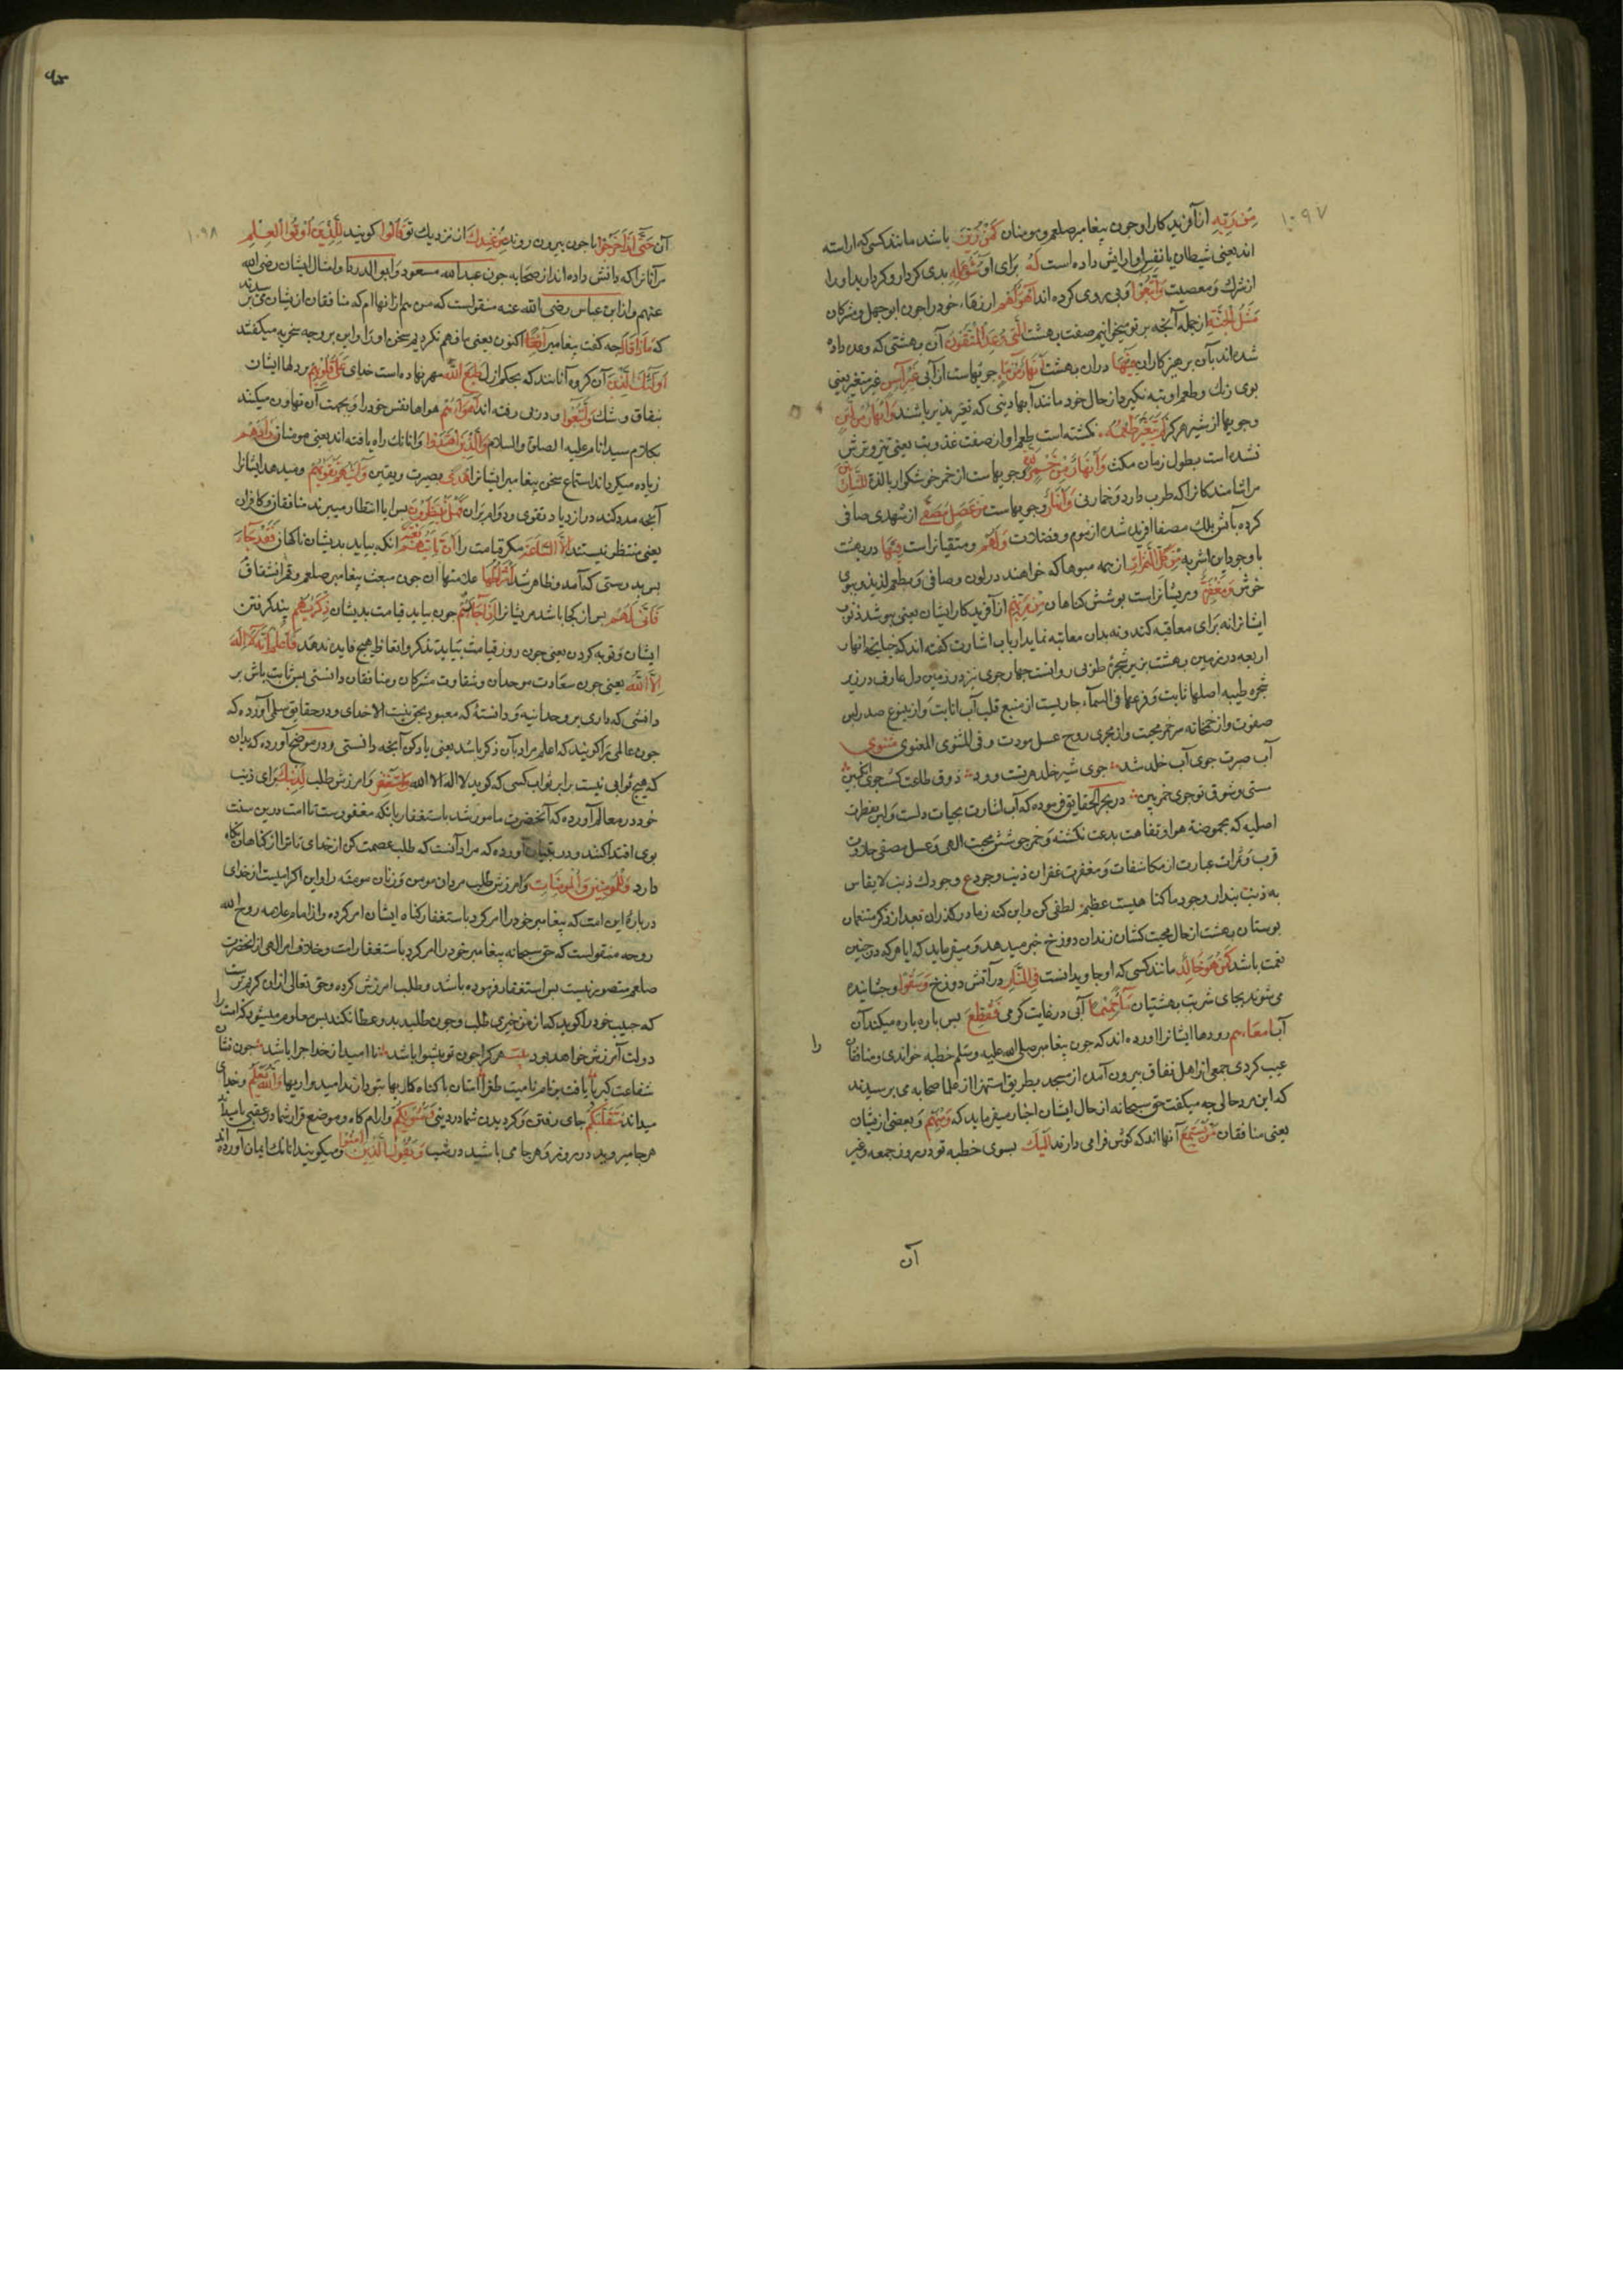 من ربه از آفریدکار او جون پیغامبر صلعم و مومنان کمن زین باشد مانند کسی که اراسته
اند یعنی شیطان یا نفس او ارایش داده است له برای او سوء عمله بدی کردار او کردار بد او را
از شرک و معصیت واتبعوا و پی روی کرده اند اهواءهم ارزهاء خود را جون ابو جهل و مشرکان
مثل الجنة از جمله آنجه بر تو میخوانیم صفت بهشت التی وعد المتقون آن بهشتی که وعده داده
شده اند بآن برهیزکاران فیها دران بهشت انهار من ماء جویهاست از آبی غیر آسن غیر متغیر یعنی
بوی رنک و طعم او تبه نکیرد از حال خود مانند آبهاء دنیی که تغیر بذیر باشند وانهار من لبن
و جویها از شیر هرکز لم یتغیر طعمه نکشته است طعم او از صفت عذوبت یعنی تیز و ترش
نشده است بطول زمان مکث وانهار من خمر لذة و جویهاست از خمر خوشکوار با لذة للشاربین
مر اشامندکانرا که طرب دارد و خمار نی وانهار و جویهاست من عسل مصفی از شهدی صافی
کرده بآتش بلک مصفا افریده شده از موم و فضلات ولهم و متقیانراست فیها در بهشت
با وجود این اشربه من کل الثمرات از همه میوها که خواهند در لون و صافی و بطعم لذیذ و ببوی
خوش ومغفرة و مریشانراست بوشش کناهان من ربهم از آفریدکار ایشان یعنی بپوشد ذنوب
ایشانرا نه برای معاقبه کند و نه بدان معاتبه نماید ارباب اشارت کفته اند که جنانجه انهار
اربعه در زمین بهشت بزیر شجرهٔ طوبی روانست جهار جوی نیز در زمین دل عارف در زیر
شجره طیبه اصلها ثابت و فرعها فی السماء جاریست از منبع قلب آب انابت و از ینبوع صدر لبن
صفوت و از خمخانه سر خمر محبت و از مجری روح عسل مودت و فی المثنوی المعنوی مثنوی
آب صبرت جوی آب خلد شد جوی شیر خلد مهر تست و ود ذوق طاعت کشت جوی انکبین
مستی و شوق تو جوی خمر بین در بحر الحقایق فرموده که آب اشارت بحیات دلست و لبن بفطرت
اصلیه که بحموضة هوا و تفاهت بدعت نکشته و خمر جوشش محبت الهی و عسل مصفی حلاوت
قرب و ثمرات عبارت از مکاشفات و مغفرت غفران ذنب وجود ع وجودک ذنب لا یقاس
به ذنب پندار وجود ما کناهیست عظیم لطفی کن و این کنه ز ما در کذران بعد از ذکر متنعمان
بوستان بهشت از حال محبت کشان زندان دوزخ خبر میدهد و میفرماید که ایا هر که در جنین
نعمت باشد کمن هو خالد مانند کسی که او جاویدانست فی النار در آتش دوزخ وسقوا و جشانیده
می شوند بجای شربت بهشتیان ماء حمیما آبی در غایت کرمی فقطع بس باره باره میکند آن
آب امعاءهم رودها ایشانرا اورده اند که جون پیغامبر صلی الله علیه و سلم خطبه خواندی و منافقان را
عیب کردی جمعی از اهل نفاق بیرون آمدن از مسجد بطریق استهزا از علما صحابه می برسیدند
که این مرد حالی جه میکفت حق سبحانه از حال ایشان اخبار میفرماید که ومنهم و بعضی از یشان
یعنی منافقان من یستمع آنها اند که کوش فرا می دارند الیک بسوی خطبه تو در روز جمعه و غیر
آن
۱۰۹۷
آن حتی اذا خرجوا تا جون بیرون روند من عندک از نزدیک تو قالوا کویند للذین اوتوا العلم
مر آنانرا که دانش داده اند از صحابه جون عبد الله مسعود و ابو الدردا و امثال ایشان رضی الله
عنهم و از ابن عباس رضی الله عنه منقولست که من هم از انهاام که منافقان از یشان می پرسیدند
که ماذا قال جه کفت پیغامبر آنفا اکنون یعنی ما فهم نکردیم سخن او را و این بر وجه سخریه میکفتند
اولئک الذین آن کروه آنانند که بحکم ازل طبع الله مهر نهاده است خدای علی قلوبهم بر دلها ایشان
بنفاق و شک واتبعوا و در پی رفته اند اهواءهم هواها نفس خود را و بجهت آن تهاون میکنند
بکلام سید انام علیه الصلوة والسلام والذین اهتدوا و انانک راه یافته اند یعنی مومنان زادهم
زیاده میکرداند استماع سخن پیغامبر ایشانرا هدی بصیرت و یقین وآتیهم تقویهم و میدهد ایشانرا
آنجه مدد کند در ازدیاد تقوی و دوام بر آن فهل ینظرون بس ایا انتظار میبرند منافقان و کافران
یعنی منتظر نیستند الا الساعة مکر قیامت را ان تاتیهم بغتة انکه بیاید بدیشان ناکهان فقد جاء
بس بدرستی که آمد و ظاهر شد اشراطها علامتها ان جون مبعث پیغامبر صلعم و انشقاق قمر
فانی لهم بس از کجا باشد مریشانرا اذا جاءتهم جون بیاید قیامت بدیشان ذکریهم پند کرفتن
ایشان و توبه کردن یعنی جون روز قیامت بیاید تذکر و اتعاظ هیج فایده ندهد فاعلم انه لا اله
الا الله یعنی جون سعادت موحدان و شقاوت مشرکان و منافقان دانستی بس ثابت باش بر
دانشی که داری بر وحدانیه و دانستهٔ که معبود بحق نیست الا خدای و در حقایق سلمی آورده که
جون عالمی را کویند که اعلم مراد بآن ذکر باشد یعنی یاد کن آنجه دانستی و در موضح آورده که بدان
که هیج ثوابی نیست برابر ثواب کسی که کوید لا اله الا الله واستغفر و امرزش طلب لذنبک برای ذنب
خود در معالم آورده که آنحضرت مامور شد باستغفار با نکه مغفورست تا امت درین سنت
بوی اقتدا کنند و در تبیان آورده که مراد آنست که طلب عصمت کن از خدای تا ترا از کناهان نکاه
دارد وللمؤمنین والمؤمنات و امرزش طلب مردان مومن و زنان مومنه را و این اکرامیست از خدای
دربارهٔ این امت که پیغامبر خود را امر کرد باستغفار کناه ایشان امر کرده و از امام علامه روح الله
روحه منقولست که حق سبحانه پیغامبر خود را امر کرد باستغفار امت و خلاف امر الهی از انحضرت
صلعم متصور نیست بس استغفار فرموده باشد و طلب امرزش کرده و حق تعالی ازان کریم ترست
که حبیب خود را کوید که از من جیزی طلب و جون طلبید بدو عطا نکند بس معلوم میشود که امت را
دولت آمرزش خواهد بود بیت هر کرا جون تو پیشوا باشد نا امید از خدا جرا باشد جون نشان
شفاعت کبری یافت بر نام نامیت طغرا امتان با کناه کاریها بتو دارند امیدواریها والله یعلم و خدای
میداند متقلبکم جای رفتن و کردیدن شما در دنیی ومثویکم و ارام کاه و موضع قرار شما در عقبی یا میداند
هر جا میروید در روز و هر جا می باشید در شب ویقول الذین آمنوا و میکویند انانک ایمان آورده اند
۱۰۹۸